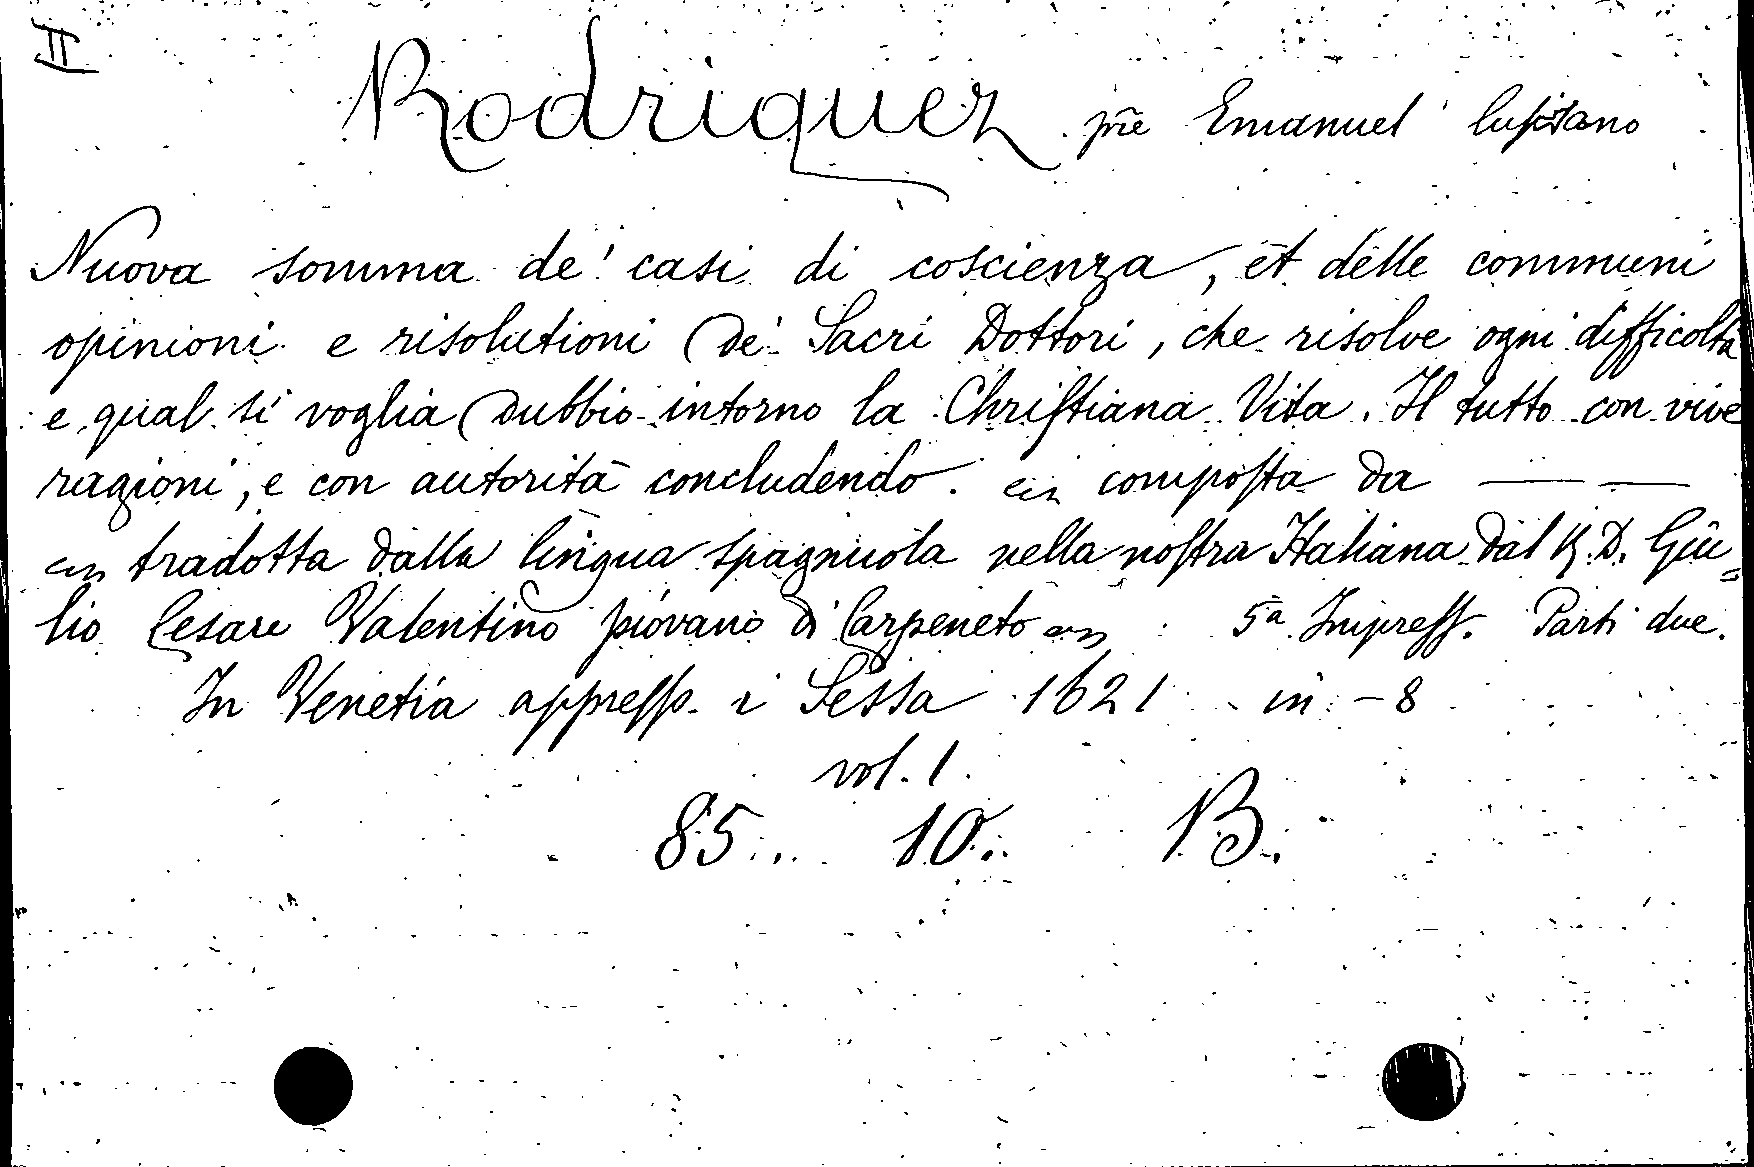 II
Rodriquez pre Emanuel lusitano
Nuova somma de' casi di coscienza, et delle communi
opinioni e risolutioni de' Sacri Dottori, che risolve ogni difficoltà
e qual si voglia dubbio intorno la Christiana Vita. Il tutto con vive
ragioni, e con autorità concludendo. composta da — —
tradotta dalla lingua spagnuola nella nostra Italiana dal R. D. Giu=
lio Cesare Valentino piovano di Carpeneto 5a Impress. Parti due.
In Venetia appresso i Sessa 1621 in-8
vol. 1.
85. 10. B.